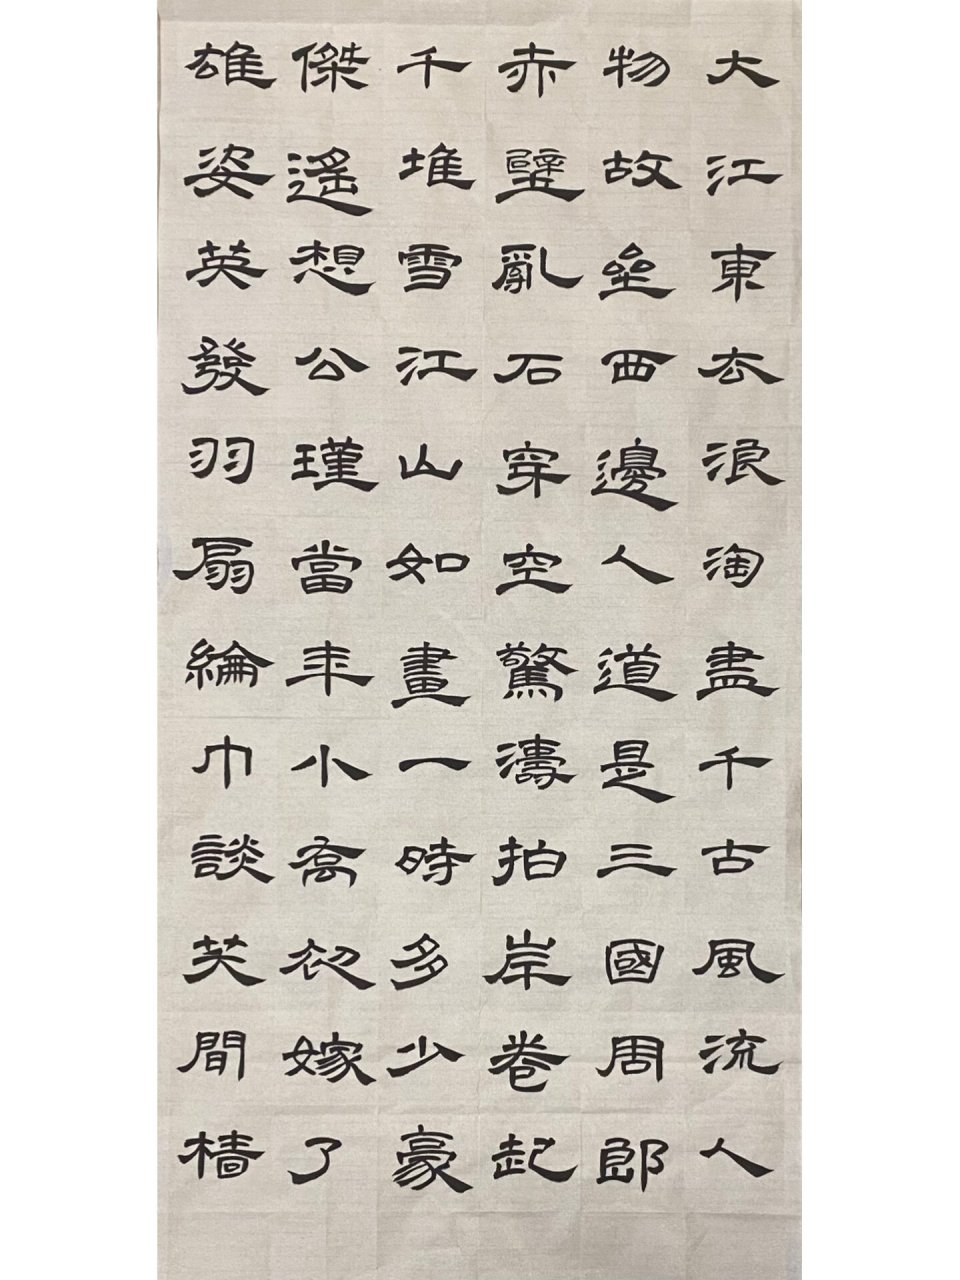 大江東去浪淘盡千古風流人
物故壘西邊人道是三國周郎
赤壁亂石穿空驚濤拍岸卷起
千堆雪江山如畫一時多少豪
傑遙想公瑾當年小喬初嫁了
雄姿英發羽扇綸巾談笑間檣